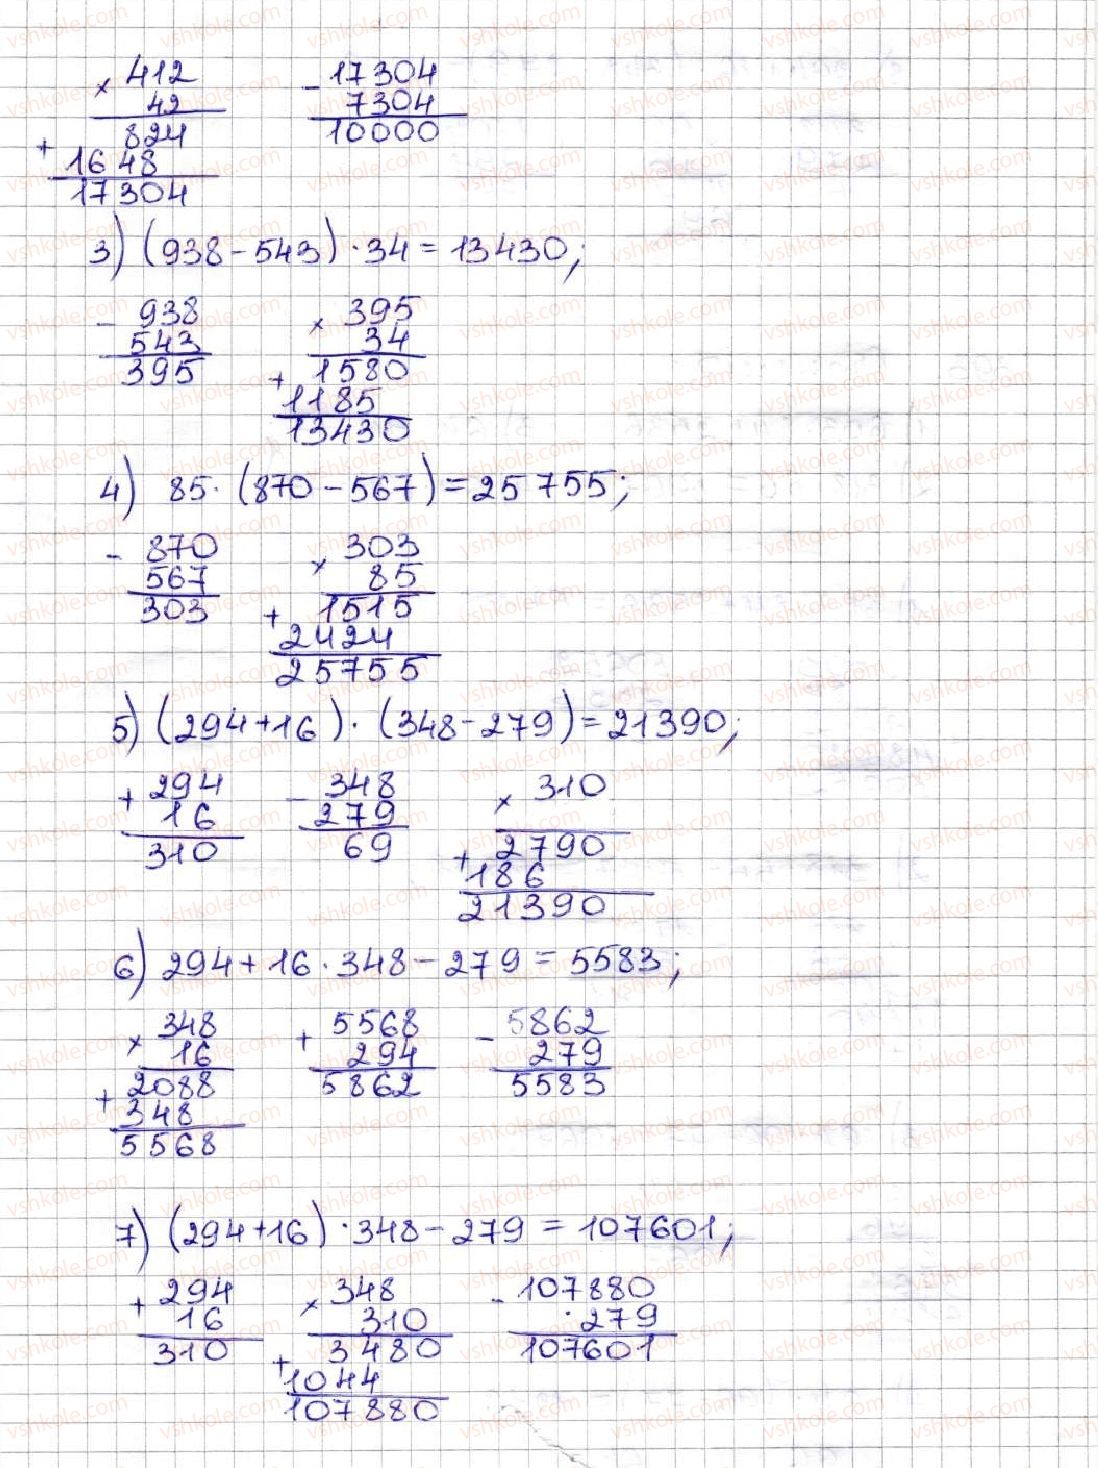 × 412   - 17304
42   7304
824   10000
+ 1648
17304
3) (938 - 543) · 34 = 13430;
- 938   × 395
543   34
395   1580
+ 1185
13430
4) 85 · (870 - 567) = 25755;
- 870   × 303
567   85
303   1515
+ 2424
25755
5) (294 + 16) · (348 - 279) = 21390;
+ 294   - 348   × 310
16   279
310   69   2790
+ 186
21390
6) 294 + 16 · 348 - 279 = 5583;
× 348   + 5568   - 5862
16   294   279
2088   5862   5583
+ 348
5568
7) (294 + 16) · 348 - 279 = 107601;
+ 294   × 348   - 107880
16   310   279
310   3480   107601
+ 1044
107880